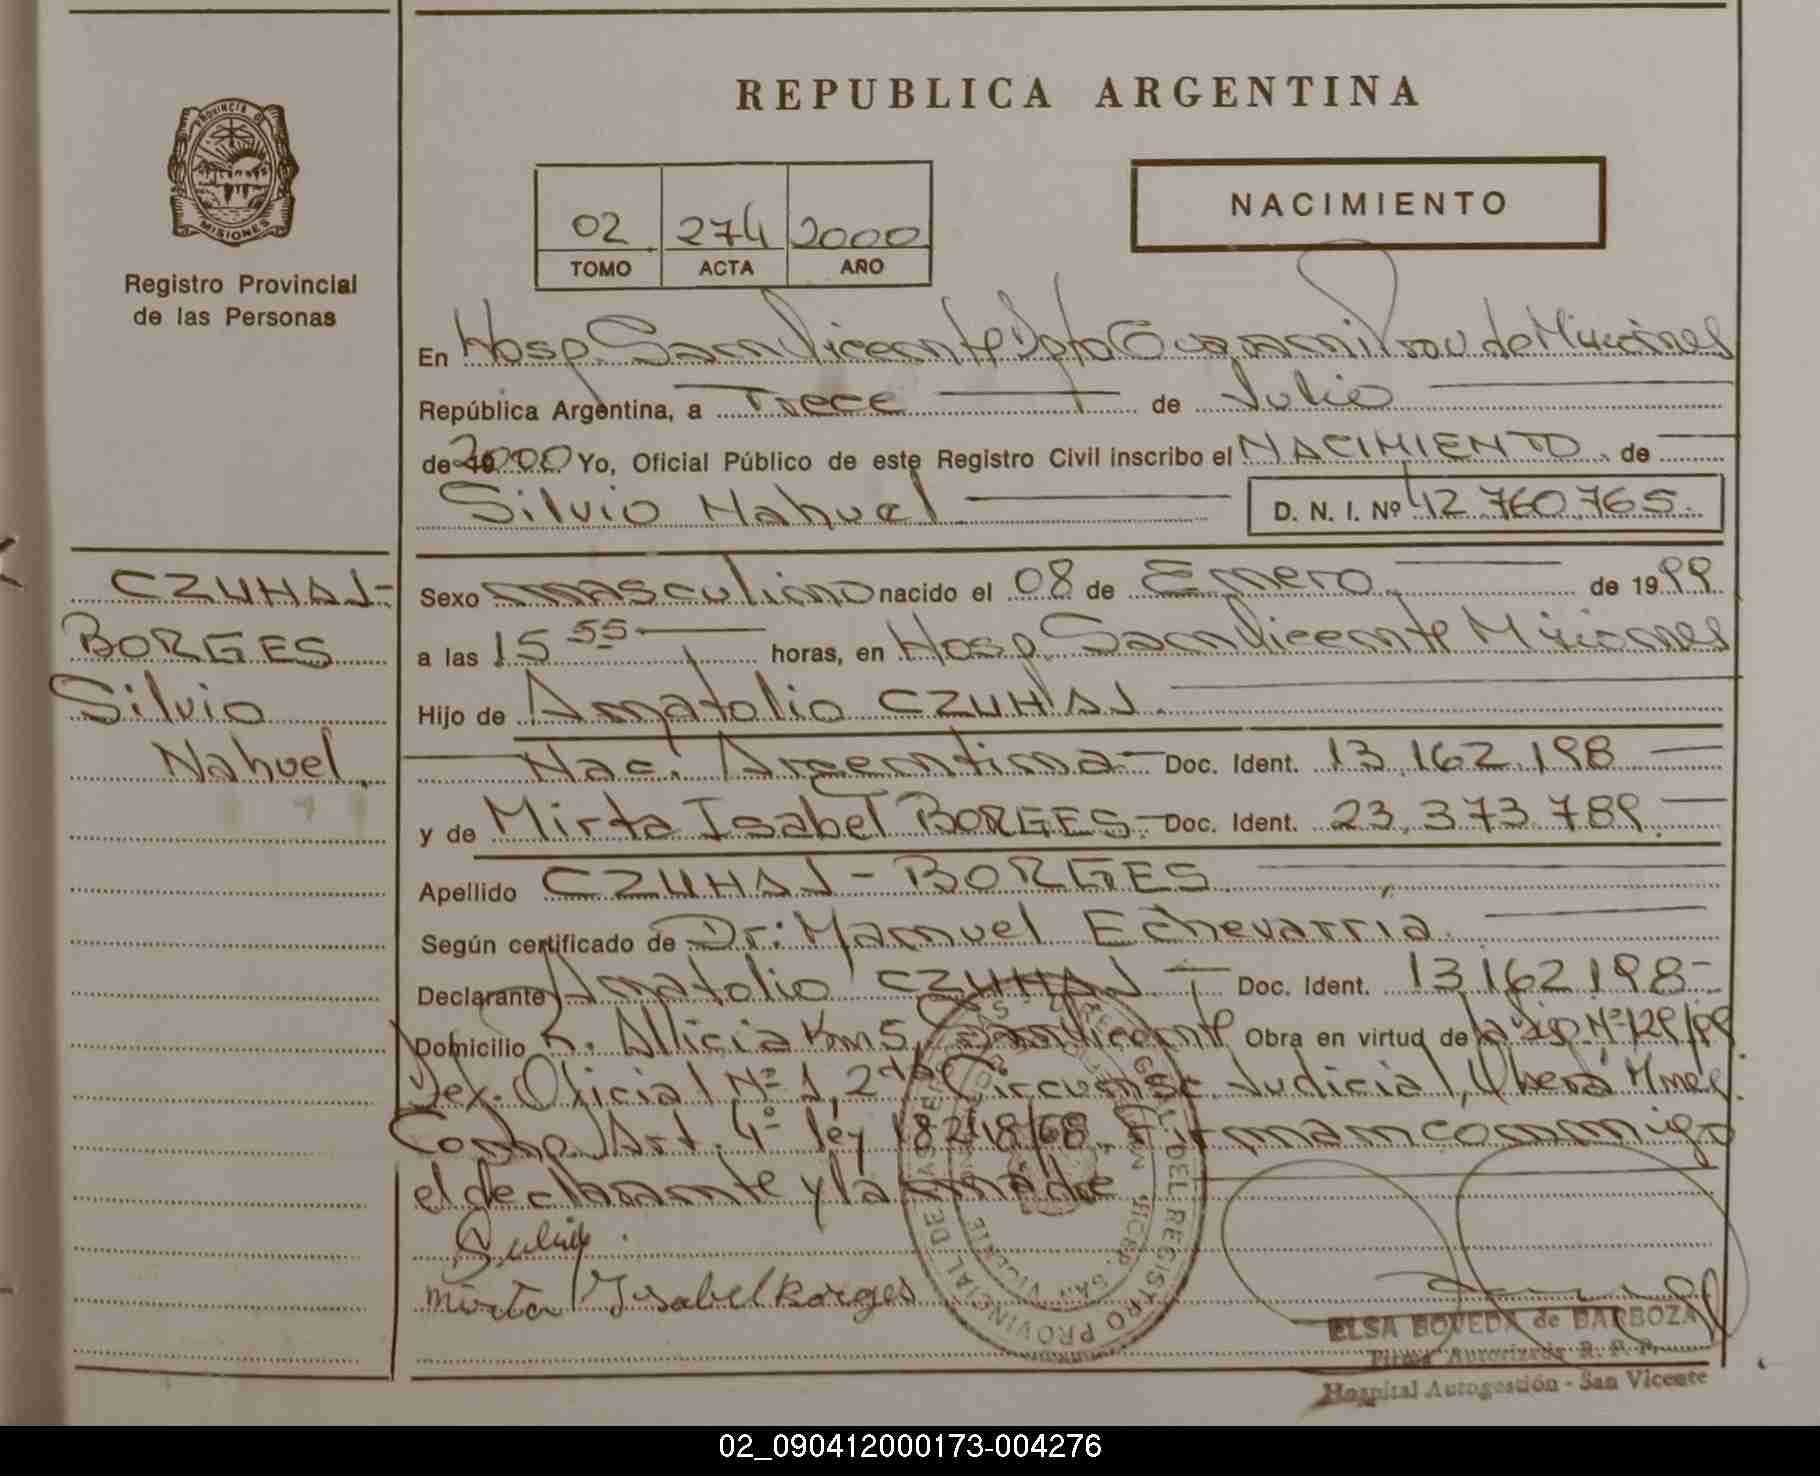 REPUBLICA ARGENTINA
PROVINCIA D
MISIONES
Registro Provincial
de las Personas
02 274 2000
TOMO ACTA AÑO
NACIMIENTO
En Hosp. San Vicente Dpto Guarani Prov de Misiones
República Argentina, a Trece de Julio
de 2000 Yo, Oficial Público de este Registro Civil inscribo el NACIMIENTO de
Silvio Nahuel D. N. I. Nº 42.760.765.
CZUHAJ-
BORGES
Silvio
Nahuel.
Sexo masculino nacido el 08 de Enero de 1999
a las 15 55 horas, en Hosp. San Vicente Misiones
Hijo de Anatolio CZUHAJ
Nac. Argentina - Doc. Ident. 13.162.198
y de Mirta Isabel BORGES - Doc. Ident. 23.373.789.
Apellido CZUHAJ - BORGES
Según certificado de Dr: Manuel Echevarria
Declarante Anatolio CZUHAJ Doc. Ident. 13.162.198-
Domicilio R. Allicia Km 5, San Vicente Obra en virtud de Nº 129/99
Oficial Nº 1, 2da Circunsc. Judicial, Oberá Mnes.
Conf. Art. 4º ley 18248/68. Firman conmigo
el declarante y la madre
Mirta Ysabel Borges
REGISTRO PROVINCIAL DE LAS PERSONAS
SAN VICENTE
ELSA BOVEDA de BARBOZA
Firma Autorizada R. P. P.
Hospital Autogestión - San Vicente
02_090412000173-004276